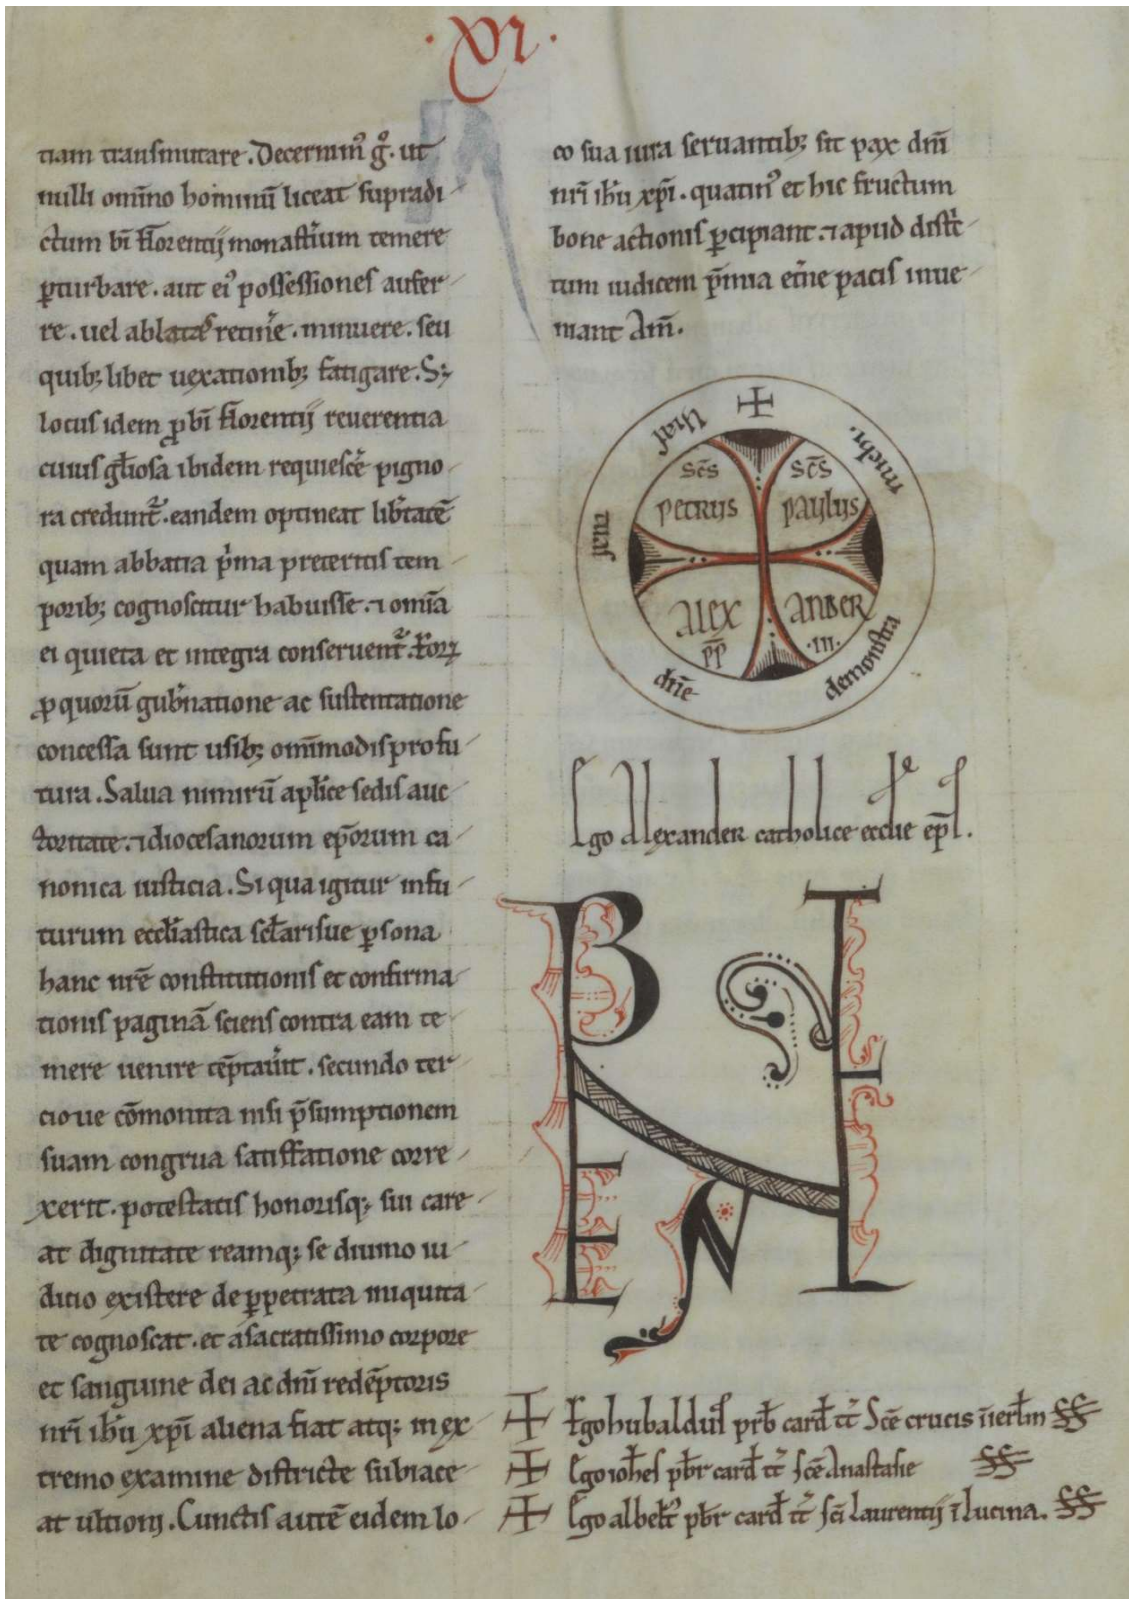 ·XVI·
tiam transmutare. Decernim᷒ gͦ. ut
nulli om̄ino hominū liceat supradi
ctum bi̅ florentij monast̓ium temere
ꝑturbare. aut ei᷒ possessiones aufer
re. uel ablatas retin̓e. minuere. seu
quibꝫ libet uexationibꝫ fatigare. Sꝫ
locus idem ꝓ bi̅ florentij reuerentia
cuius gl̅iosa ibidem requiesc̓e pigno
ra credunt᷑. eandem optineat lib̓tatē
quam abbatia p̓ma preteritis tem
poribꝫ cognoscitur habuisse. ⁊ omīa
ei quieta et integra conseruent᷑. Eoꝝ
ꝓ quorū gub̓natione ac sustentatione
concessa sunt usibꝫ omīmodis profu
tura. Salua nimirū aplīce sedis auc
toritate. ⁊ diocesanorum ep̄orum ca
nonica iusticia. Si qua igitur in fu
turum eccl̅iastica sc̅larisue ꝑsona
hanc nr̄e constitutionis et confirma
tionis paginā sciens contra eam te
mere uenire tēptau̓it. secundo ter
cio ue cōmonita nisi p̄sumptionem
suam congrua satisfatione corre
xerit. potestatis honorisqꝫ sui care
at dignitate reamqꝫ se diuino iu
dicio existere de ꝑpetrata iniquita
te cognoscat. et a sacratissimo corpore
et sanguine dei ac dn̄i redēptoris
nr̄i ih̄u xp̄i aliena fiat atqꝫ in ex
tremo examine districte subiace
at ultioni. Cunctis autē eidem lo
co sua iura seruantibꝫ sit pax dn̄i
nr̄i ih̄u xp̄i. quatin᷒ et hic fructum
bone actionis ꝑcipiant. ⁊ apud distͨ
tum iudicem p̄mia et̓ne pacis inue
niant Am̄.
+ Vias tuas dn̄e demonstra michi.
sc̄s petrus sc̄s paulus
Alexander
pp̄ ·III·
Ego Alexander catholice ecclie ep̄s.
BENE VALETE
+ Ego hubaldus prb̅ card̅ tt̅ Sc̄e crucis ī ierl̅m SS
+ Ego ioh̅es pb̅r card̅ tt̅ sc̄e Anastasie SS
+ Ego alb̅et᷒ pb̅r card̅ tt̅ sc̄i Laurentij ī lucina. SS